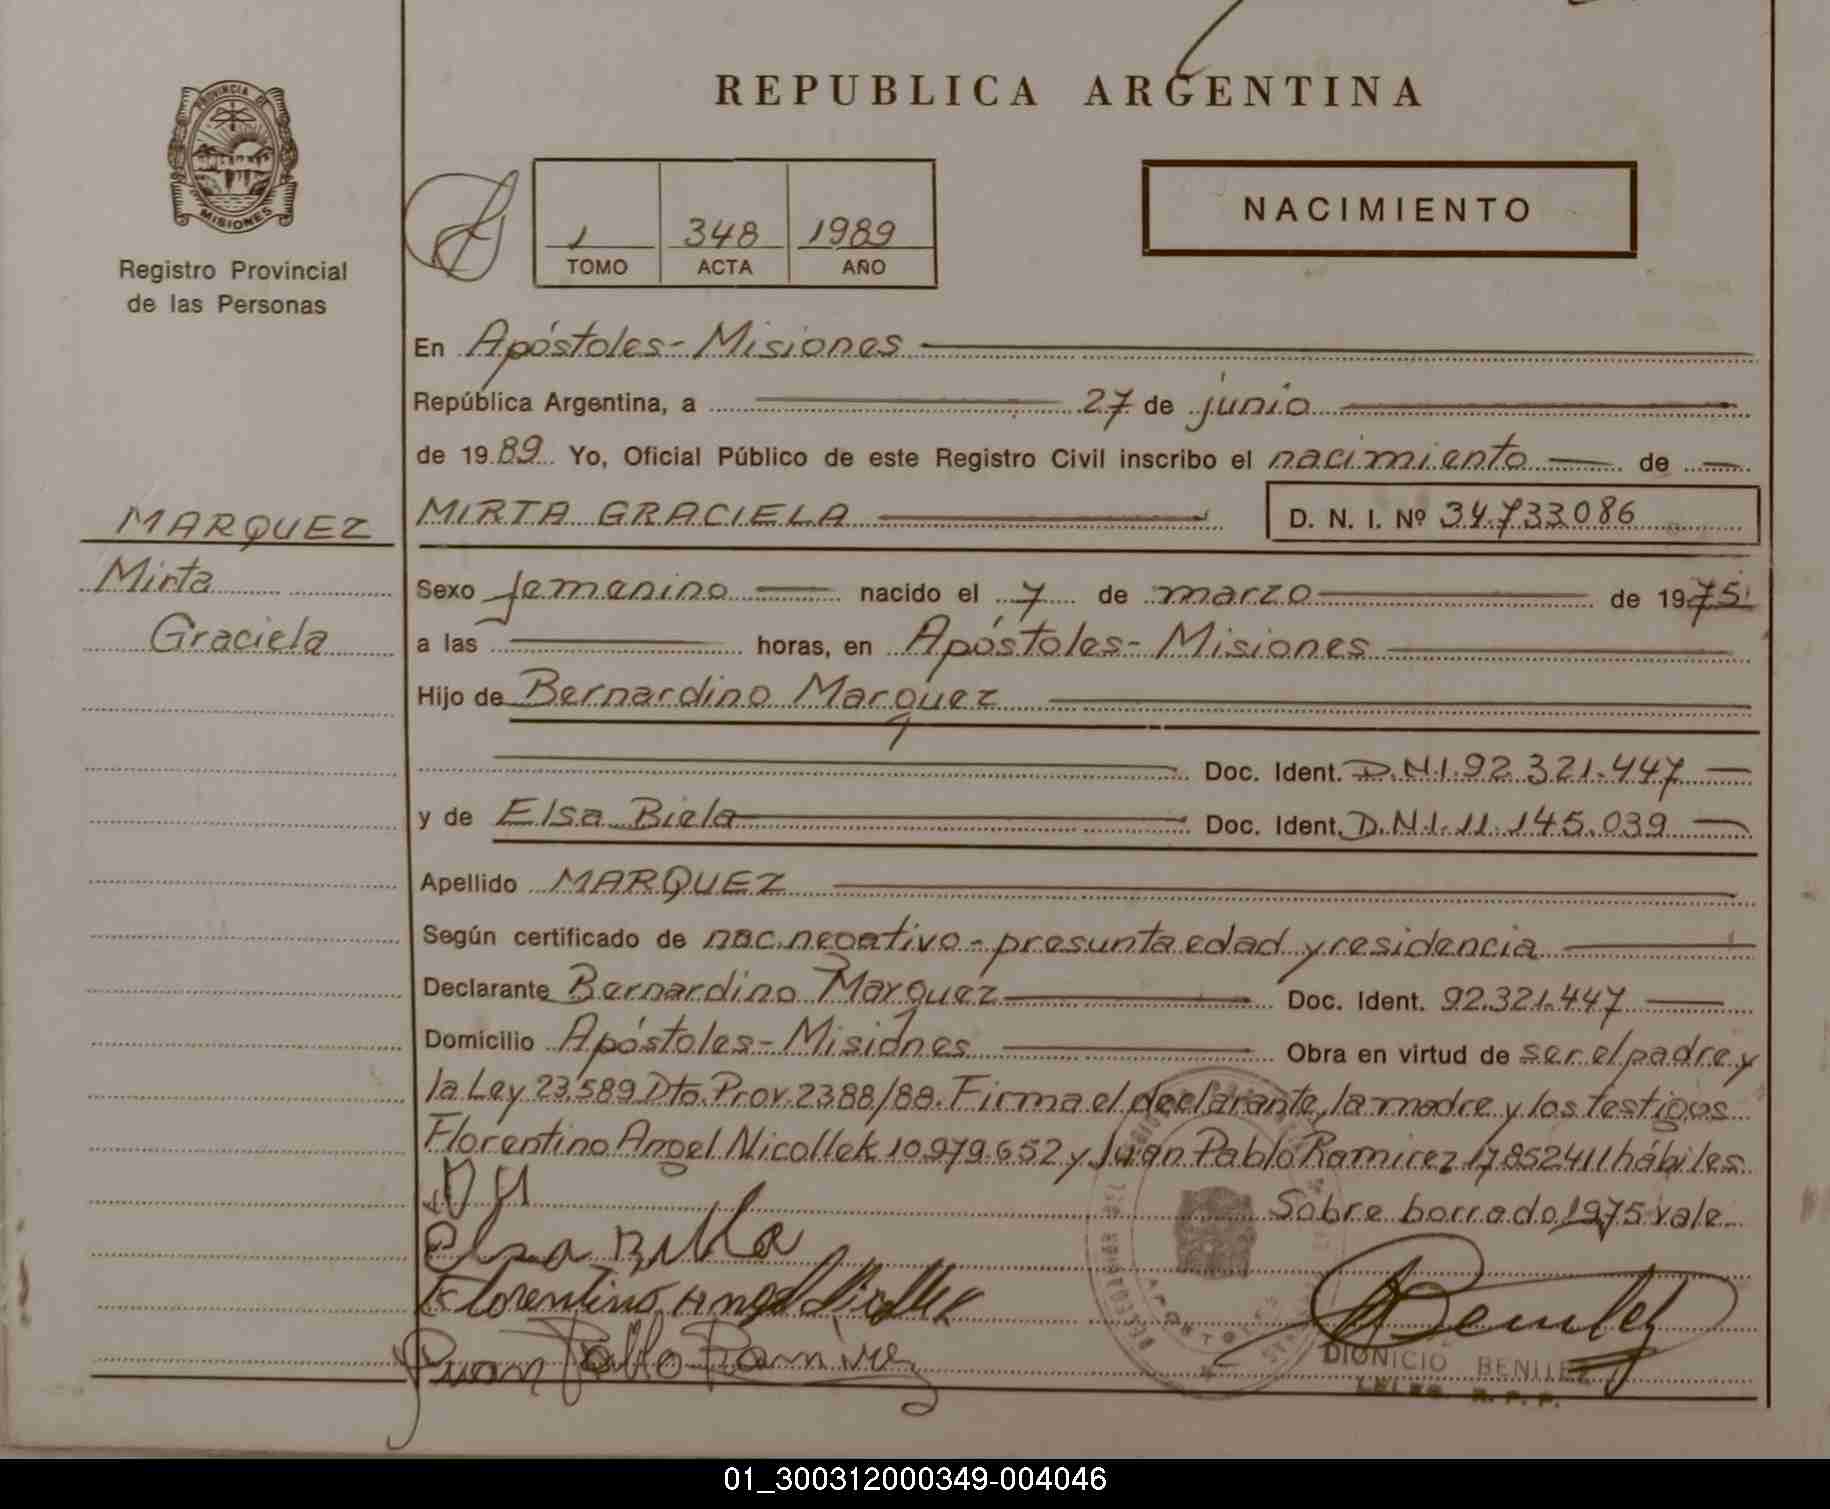 REPUBLICA ARGENTINA
PROVINCIA DE
MISIONES
Registro Provincial
de las Personas
1 348 1989
TOMO ACTA AÑO
NACIMIENTO
En Apóstoles - Misiones
República Argentina, a 27 de junio
de 1989 Yo, Oficial Público de este Registro Civil inscribo el nacimiento de
MARQUEZ
Mirta
Graciela
MIRTA GRACIELA D. N. I. Nº 34.733086
Sexo femenino nacido el 7 de marzo de 1975
a las horas, en Apóstoles - Misiones
Hijo de Bernardino Marquez
Doc. Ident. D.N.I. 92.321.447
y de Elsa Biela Doc. Ident. D.N.I. 11.145.039
Apellido MARQUEZ
Según certificado de nac. negativo - presunta edad y residencia
Declarante Bernardino Marquez Doc. Ident. 92.321.447
Domicilio Apóstoles - Misiones Obra en virtud de ser el padre y
la Ley 23.589 Dto. Prov. 2388/88. Firma el declarante, la madre y los testigos
Florentino Angel Nicollek 10.979.652 y Juan Pablo Ramirez 17852411 hábiles
Sobre borrado 1975 vale
Elsa
Florentino Angel Nicollek
Juan Pablo Ramirez
DIONICIO BENITEZ
R. P. P.
APOSTOLES
01_300312000349-004046